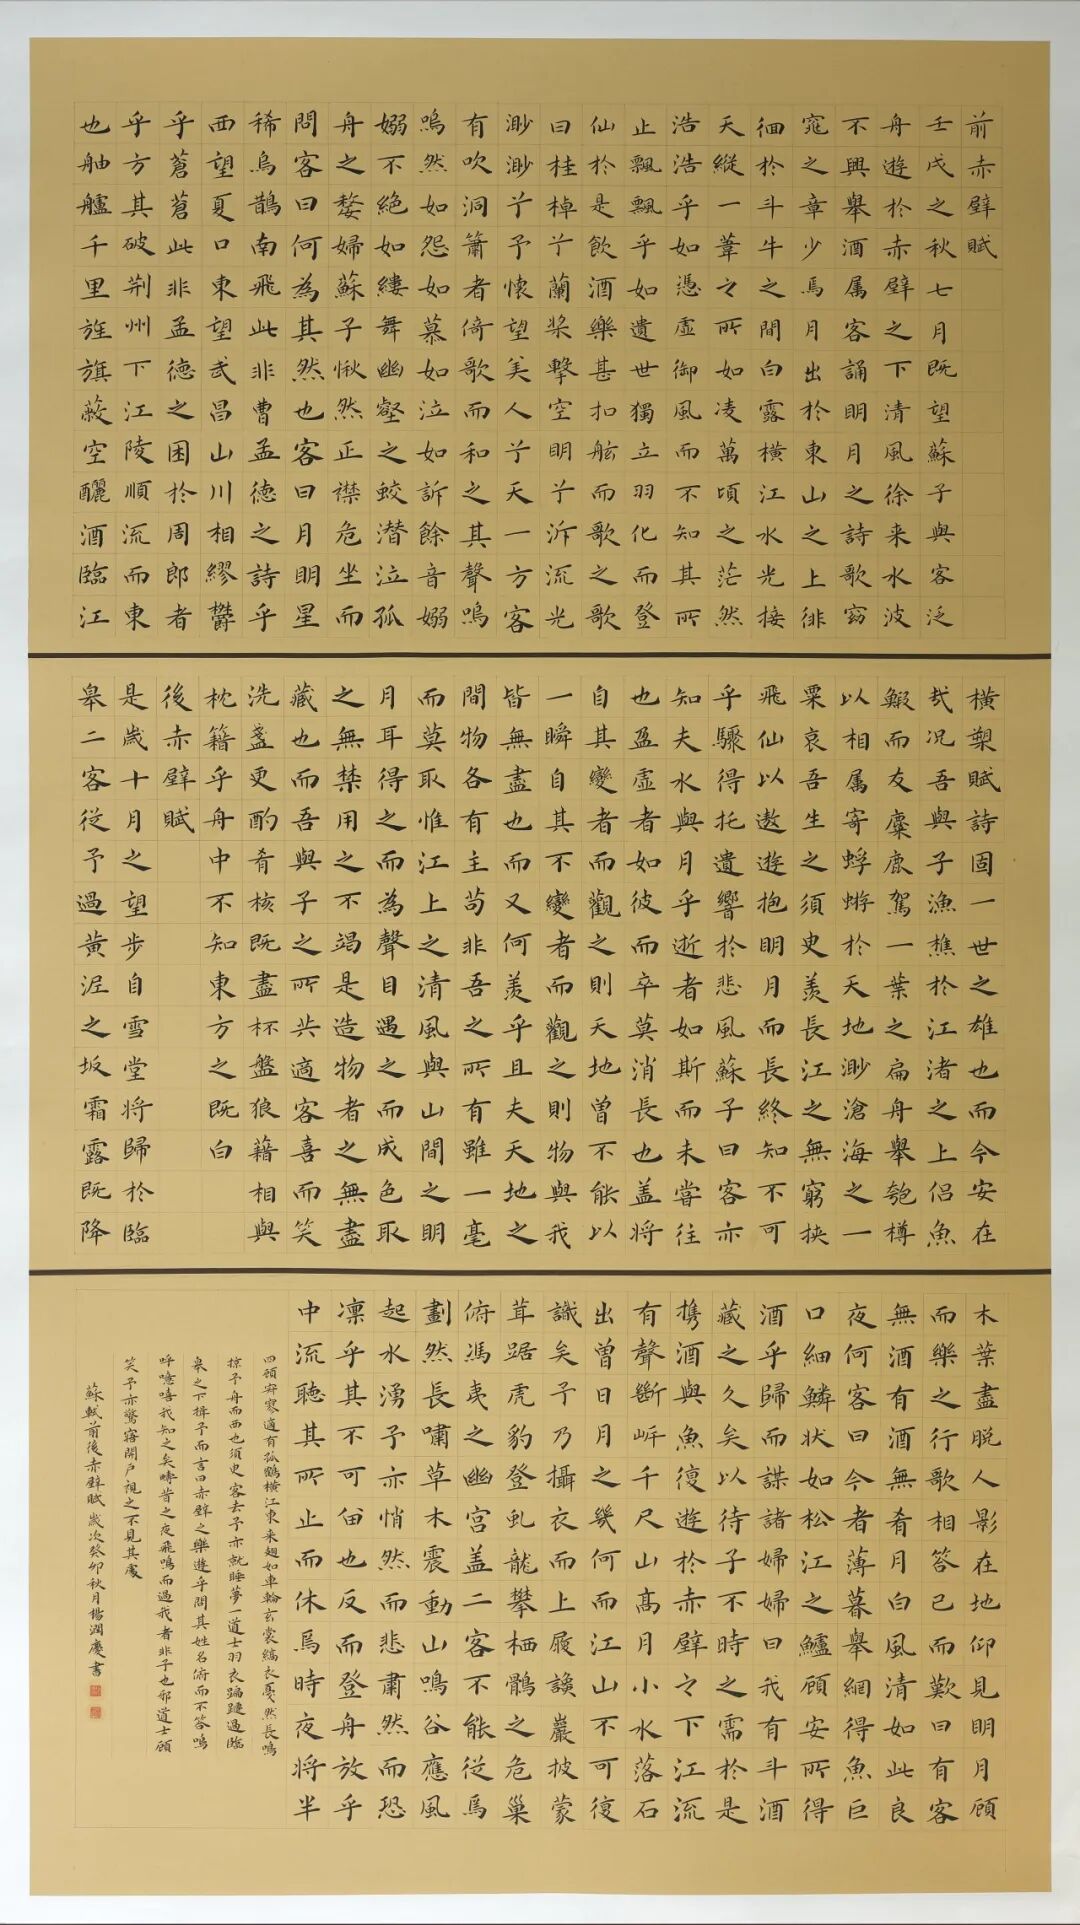 前赤壁賦
壬戌之秋七月既望蘇子與客泛
舟遊於赤壁之下清風徐来水波
不興舉酒属客誦明月之詩歌窈
窕之章少焉月出於東山之上徘
徊於斗牛之間白露橫江水光接
天縱一葦之所如凌萬頃之茫然
浩浩乎如憑虛御風而不知其所
止飄飄乎如遺世獨立羽化而登
仙於是飲酒樂甚扣舷而歌之歌
曰桂棹兮蘭桨擊空明兮泝流光
渺渺兮予懷望美人兮天一方客
有吹洞簫者倚歌而和之其聲嗚
嗚然如怨如慕如泣如訴餘音嫋
嫋不絕如縷舞幽壑之蛟潜泣孤
舟之嫠婦蘇子愀然正襟危坐而
問客曰何為其然也客曰月明星
稀烏鵲南飛此非曹孟德之詩乎
西望夏口東望武昌山川相繆鬱
乎蒼蒼此非孟德之困於周郎者
乎方其破荆州下江陵順流而東
也舳艫千里旌旗蔽空釃酒臨江
橫槊賦詩固一世之雄也而今安在
哉況吾與子漁樵於江渚之上侣魚
鰕而友麋鹿駕一葉之扁舟舉匏樽
以相属寄蜉蝣於天地渺滄海之一
粟哀吾生之須臾羨長江之無窮挾
飛仙以遨遊抱明月而長終知不可
乎驟得托遺響於悲風蘇子曰客亦
知夫水與月乎逝者如斯而未嘗往
也盈虛者如彼而卒莫消長也盖将
自其變者而觀之則天地曾不能以
一瞬自其不變者而觀之則物與我
皆無盡也而又何羨乎且夫天地之
間物各有主苟非吾之所有雖一毫
而莫取惟江上之清風與山間之明
月耳得之而為聲目遇之而成色取
之無禁用之不竭是造物者之無盡
藏也而吾與子之所共適客喜而笑
洗盞更酌肴核既盡杯盤狼藉相與
枕籍乎舟中不知東方之既白
後赤壁賦
是歲十月之望步自雪堂将歸於臨
皋二客從予過黄泥之坂霜露既降
木葉盡脱人影在地仰見明月顧
而樂之行歌相答已而歎曰有客
無酒有酒無肴月白風清如此良
夜何客曰今者薄暮舉網得魚巨
口細鱗狀如松江之鱸顧安所得
酒乎歸而謀諸婦婦曰我有斗酒
藏之久矣以待子不時之需於是
携酒與魚復遊於赤壁之下江流
有聲斷岸千尺山髙月小水落石
出曾日月之幾何而江山不可復
識矣予乃攝衣而上履讒巖披蒙
茸踞虎豹登虬龍攀栖鶻之危巢
俯馮夷之幽宫盖二客不能從焉
劃然長嘯草木震動山鳴谷應風
起水湧予亦悄然而悲肅然而恐
凛乎其不可留也反而登舟放乎
中流聽其所止而休焉時夜将半
四顧寂寥適有孤鶴橫江東来翅如車輪玄裳縞衣戛然長鳴
掠予舟而西也須臾客去予亦就睡夢一道士羽衣蹁躚過臨
皋之下揖予而言曰赤壁之樂遊乎問其姓名俯而不答嗚
呼噫嘻我知之矣疇昔之夜飛鳴而過我者非子也邪道士顧
笑予亦驚寤開户視之不見其處
蘇軾前後赤壁賦歲次癸卯秋月楊潤慶書